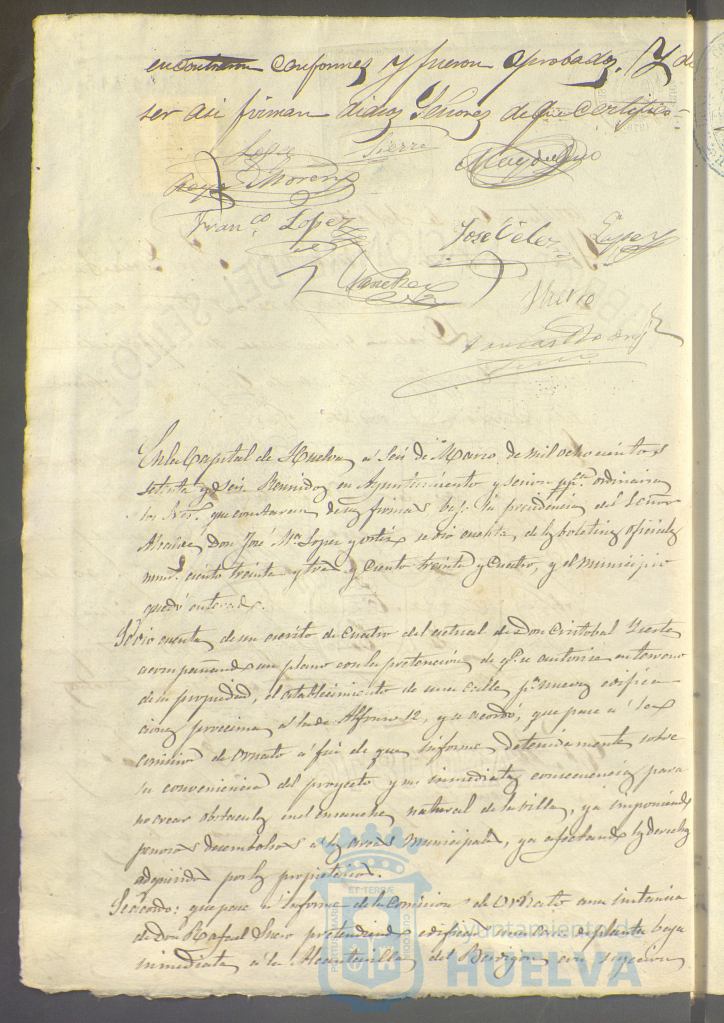 encontraron conformes y fueron aprobadas. Y de
ser asi firman dichos Señores de que certifico=
Lopez Sierra
Moreno
Fran.co Lopez
Jose Velez Lopez
Sanchez
En la Capital de Huelva á seis de Marzo de mil ochocientos
setenta y seis. Reunidos en Ayuntamiento y sesion ordinaria
los Sres. que constarán de sus firmas bajo la presidencia del Señor
Alcalde Don José Ma. Lopez y Ortiz se dió cuenta de los boletines oficiales
nums. ciento treinta y tres y ciento treinta y cuatro, y el Municipio
quedó enterado.
Se dió cuenta de un escrito de cuatro del actual de Don Cristobal
acompañando un plano con la pretencion de qe. se autorice en terreno
de su propiedad, el establecimiento de una calle pa. nuevas edifica-
ciones procsima a la de Alfonso 12, y se acordó, que pase á la
comision de Ornato á fin de que informe detenidamente sobre
la conveniencia del proyecto y sus inmediatas consecuencias para
no crear obstaculos en el ensanche natural de la villa, ya imponiendo
penosos desembolsos a las arcas Municipales, ya afectando los derechos
adquiridos por los propietarios.
Se acordó: que pase á informe de la Comision de Ornato una instancia
de Don Rafael pretendiendo edificar una casa de planta baja
inmediata á la Alcantarilla del con sujecion
Ayuntamiento de
HUELVA